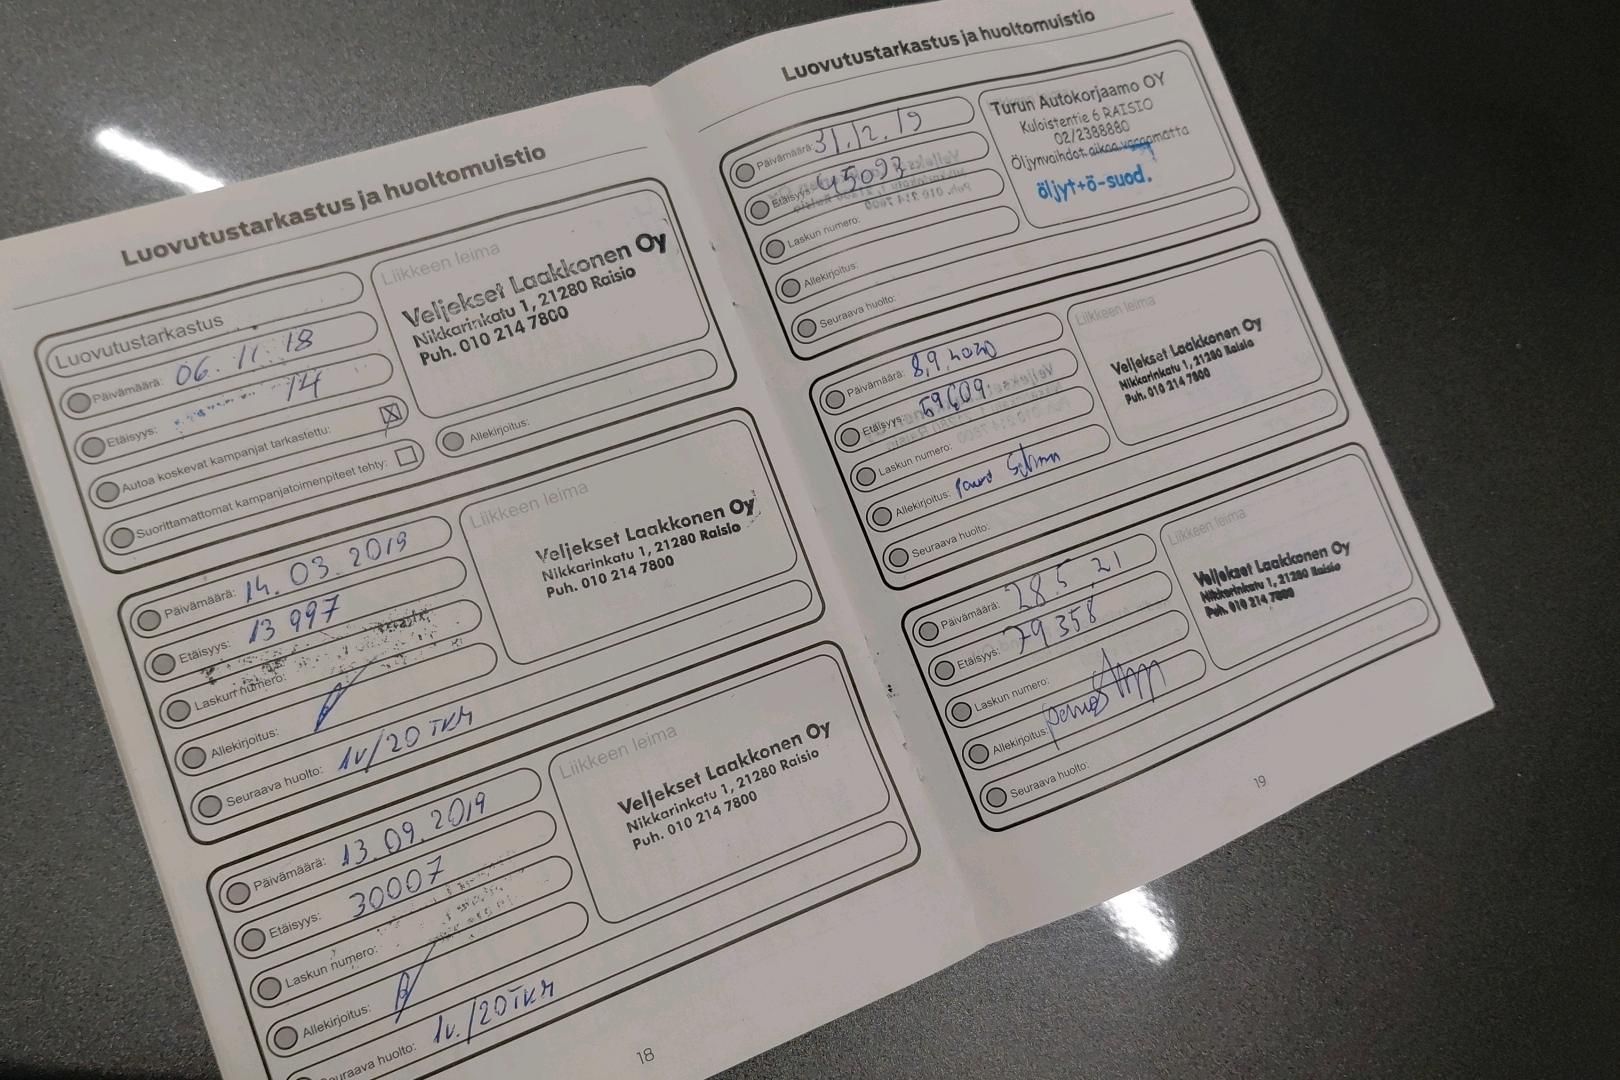 Luovutustarkastus ja huoltomuistio
Luovutustarkastus
Päivämäärä: 06.11.18
Etäisyys: 14
Autoa koskevat kampanjat tarkastettu: X
Suorittamattomat kampanjatoimenpiteet tehty:
Liikkeen leima
Veljekset Laakkonen Oy
Nikkarinkatu 1, 21280 Raisio
Puh. 010 214 7800
Allekirjoitus:
Päivämäärä: 14.03.2019
Etäisyys: 13 997
Laskun numero:
Allekirjoitus:
Seuraava huolto: 1v/20 TKM
Liikkeen leima
Veljekset Laakkonen Oy
Nikkarinkatu 1, 21280 Raisio
Puh. 010 214 7800
Päivämäärä: 13.09.2019
Etäisyys: 30007
Laskun numero:
Allekirjoitus:
Seuraava huolto: 1v./20TKM
Liikkeen leima
Veljekset Laakkonen Oy
Nikkarinkatu 1, 21280 Raisio
Puh. 010 214 7800
18
Luovutustarkastus ja huoltomuistio
Päivämäärä: 31.12.19
Etäisyys: 45093
Laskun numero:
Allekirjoitus:
Seuraava huolto:
Turun Autokorjaamo OY
Kuloistentie 6 RAISIO
02/2388880
Öljynvaihdot aikaa varaamatta
öljyt+ö-suod.
Päivämäärä: 8.9.2020
Etäisyys: 59609
Laskun numero:
Allekirjoitus:
Seuraava huolto:
Liikkeen leima
Veljekset Laakkonen Oy
Nikkarinkatu 1, 21280 Raisio
Puh. 010 214 7800
Päivämäärä: 28.5.21
Etäisyys: 79358
Laskun numero:
Allekirjoitus:
Seuraava huolto:
Liikkeen leima
Veljekset Laakkonen Oy
Nikkarinkatu 1, 21280 Raisio
Puh. 010 214 7800
19